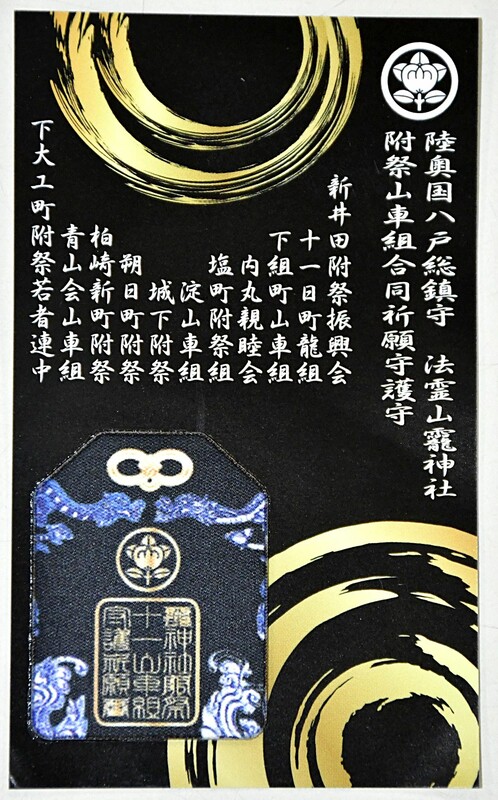 陸奥国八戸総鎮守 法霊山龗神社
附祭山車組合同祈願守護守
新井田附祭振興会
十一日町龍組
下組町山車組
内丸親睦会
塩町附祭組
淀山車組
城下附祭
朔日町附祭
柏崎新町附祭
青山会山車組
下大工町附祭若者連中
龗神社附祭
十一山車組
守護祈願